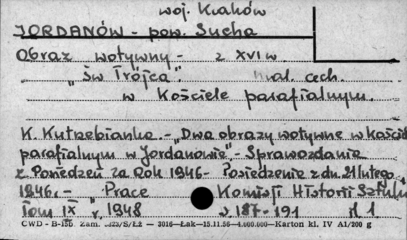 woj. Kraków
JORDANÓW - pow. Sucha
Obraz wotywny - z XVI w.
"Św Trójca". mal. cech.
w Kościele parafialnym.
K. Kutrzebianka. - "Dwa obrazy wotywne w Kości
parafialnym w Jordanowie" - Sprawozdanie
z Posiedzeń za Rok 1946 - Posiedzenie z dn. 21 lutego
1946. - Prace Komisji Historii Sztuki
Tom IX r. 1948 s. 187-191 il. 1.
CWD - B-15b. Zam. S/Łż — 3016—Łak—15.11.56—4.000.000—Karton kl. IV A1/200 g